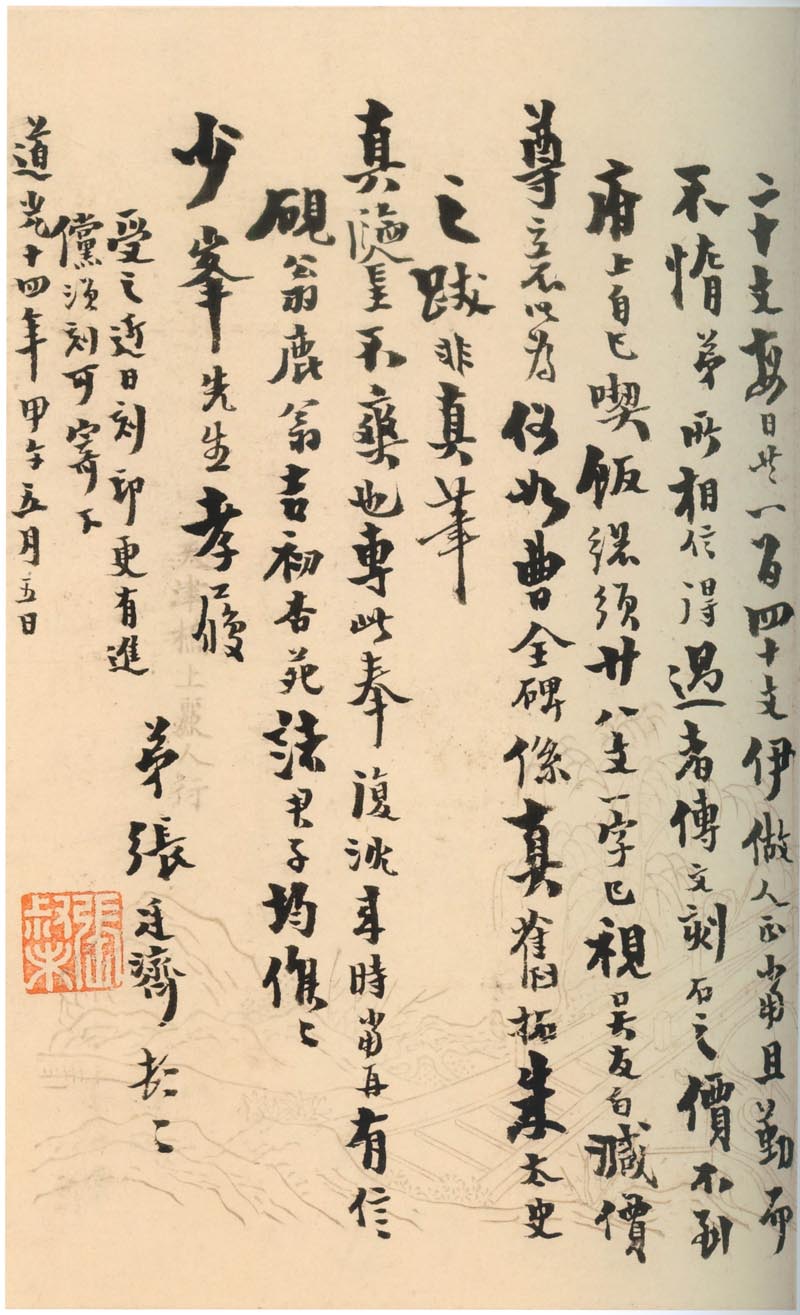 二十文每日共一百四十文伊做人正當且勤而
不惰弟所相信得過者傳文刻石之價不到
府上自己喫飯總須廿八文一字已視吳友白減價
尊意不以為何如曹全碑係真舊拓朱太史
之跋非真筆
真蹟並不藥也專此奉復洮車時當再有信
硯翁鹿翁吉初杏苑諸君子均候〻
少峯先生孝履
弟張廷濟頓〻
受之近日刻印更有進
儻須刻可寄下
道光十四年甲午五月五日
張叔未